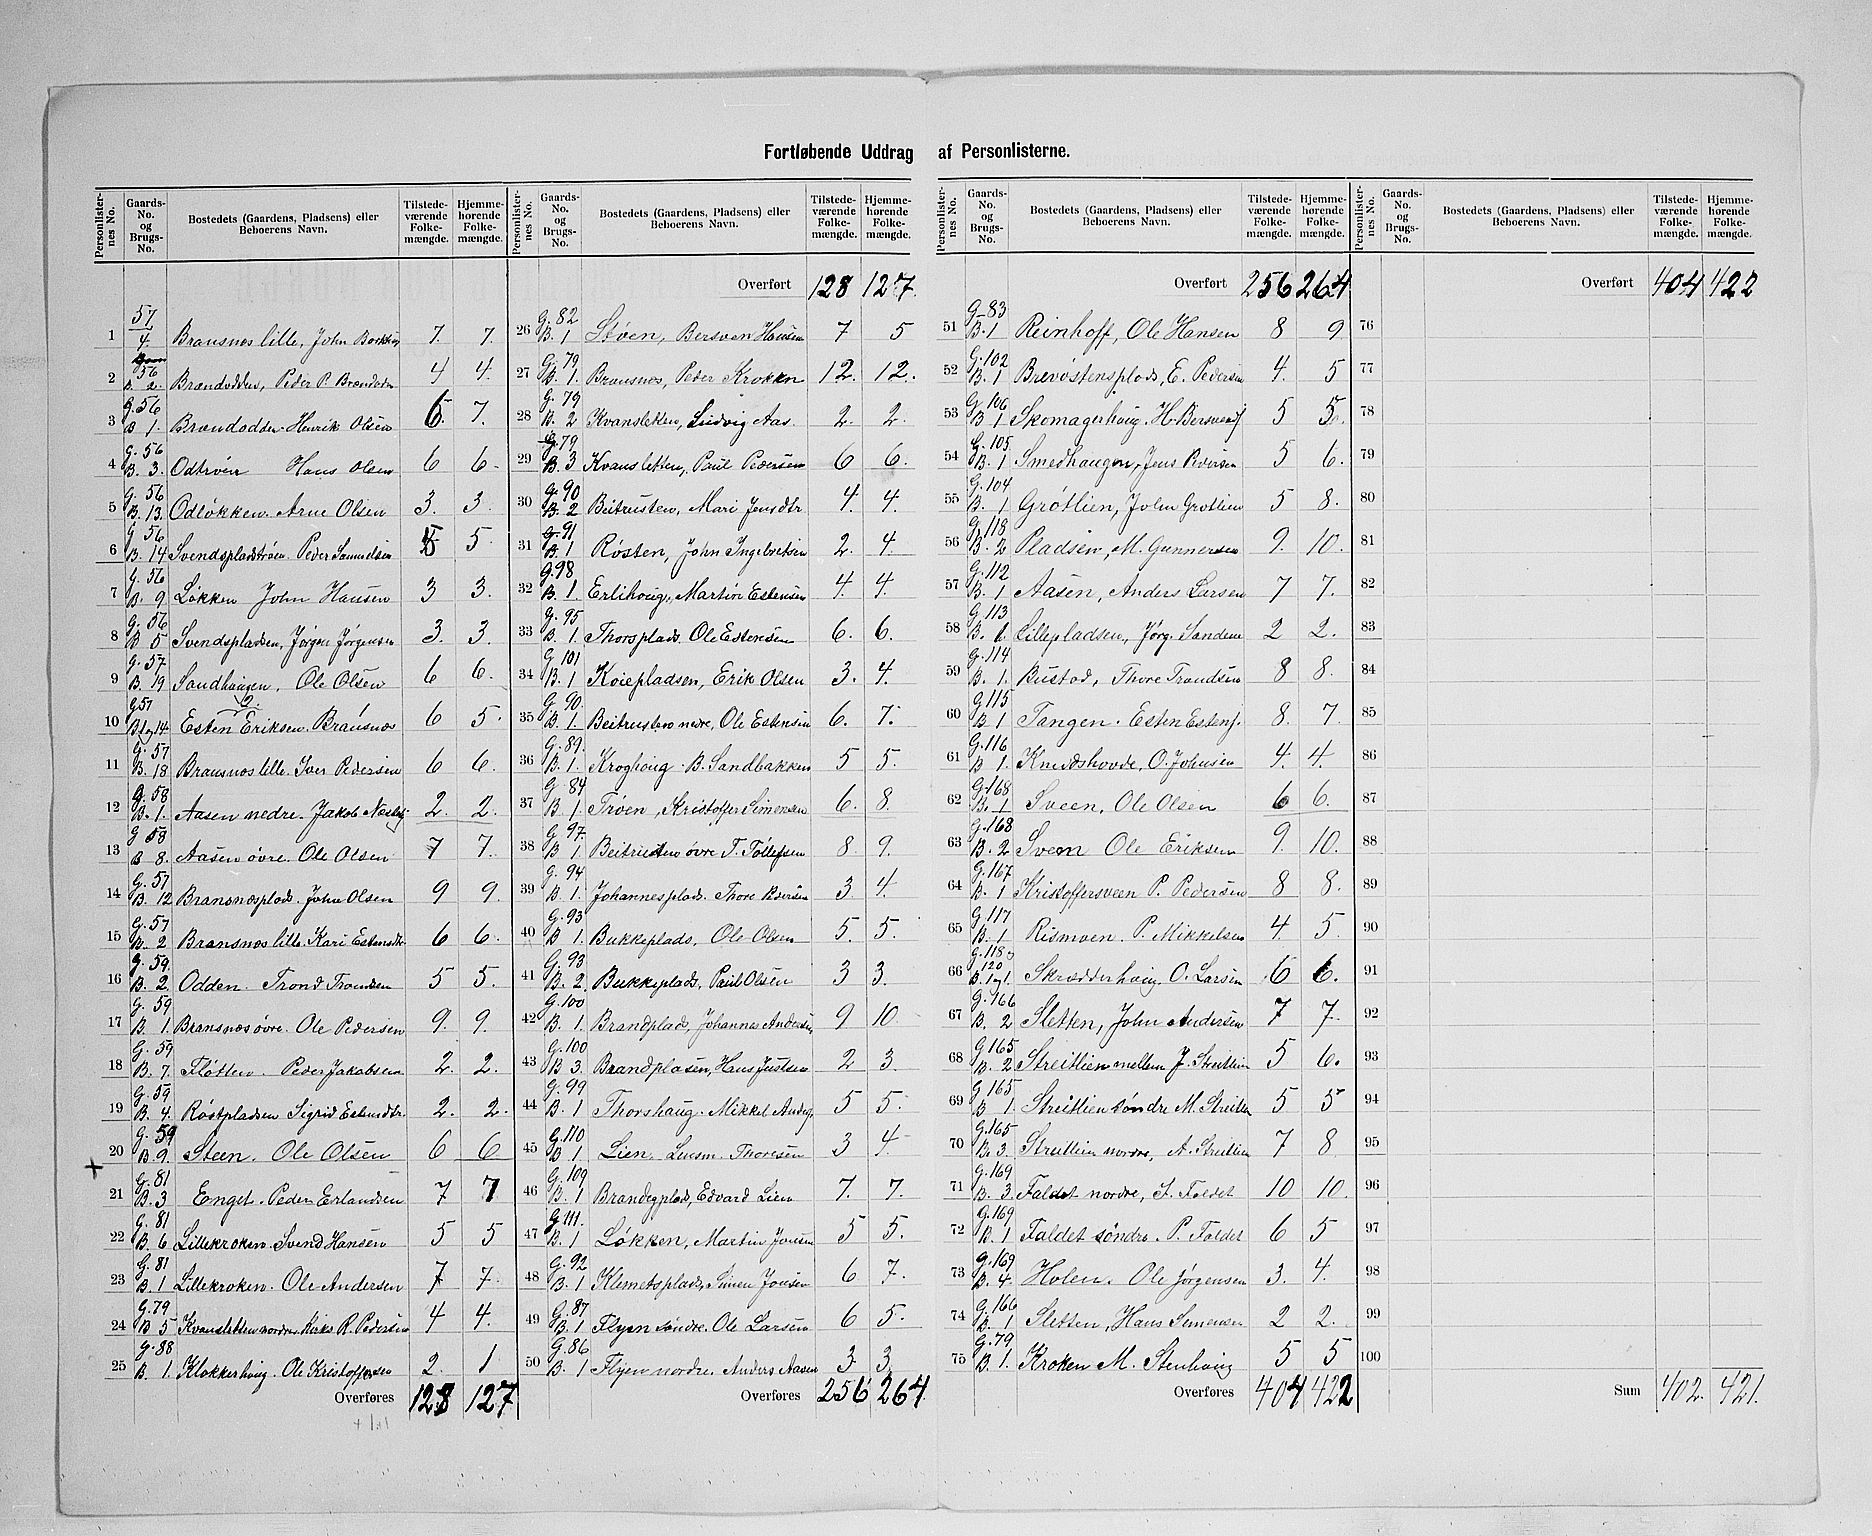 Fortløbende Uddrag af Personlisterne.
Personlister-nes No. | Gaards-No. og Brugs-No. | Bostedets (Gaardens, Pladsens) eller Beboerens Navn. | Tilstede-værende Folke-mængde. | Hjemme-hørende Folke-mængde.
1 57/4 Bransnes lille, John 7. 7.
2 56 B. 2. Brandodden, Peder P. Brandodd 4 4.
3 G. 56 B 1. Brandodden. Henrik Olsen 6. 7.
4 G. 56 B. 3. Odtrøen Hans Olsen 6 6.
5 G. 56 B. 13. Odløkken. Arne Olsen 3. 3.
6 G 56 B. 14 Svendspladstrøen Peder Samuelsen 5 5.
7 G. 56 B. 9 Løkken John Hansen 3 3.
8 G. 56 B 5 Svendspladsen, Jørgen Jørgensen 3. 3.
9 G. 57 B. 19 Sandhaugen. Ole Olsen 6 6.
10 G 57 B 1 og 14 Esten Eriksen. Bransnes 6 5.
11 G. 57 B. 18 Bransnes lille. Iver Pedersen 6 6.
12 G. 58 B. 1. Aasen nedre. Jakob 2. 2.
13 G 58 B 8. Aasen øvre. Ole Olsen 7 7.
14 G. 57 B. 12 Bransnesplads. John Olsen 9 9.
15 G. 57 B. 2 Bransnes lille. Kari Estensdtr. 6 6.
16 G. 59. B. 2. Odden. Trond Trondsen 5 5.
17 G. 59 B. 1. Bransnes øvre. Ole Pedersen 9. 9.
18 G. 59 B. 7. Fløtten. Peder Jakobsen 2. 2.
19 G. 59 B. 4. Røstpladsen Sigrid Estensdtr. 2. 2.
20 G. 59 B. 9. Steen. Ole Olsen 6 6
+
21 G. 81 B. 3 Enget. Peder Erlandsen 7 7
22 G. 81 B. 6 Lillekroken. Svend Hansen 5 5
23 G. 81 B. 1 Lillekroken. Ole Andersen 7 7.
24 G. 79 B 5 Kvansletten nordre. R. Pedersen 4 4.
25 G. 88 B. 1. Klokkerhoug. Ole Kristoffersen 2. 1
Overføres 128 127
Personlister-nes No. | Gaards-No. og Brugs-No. | Bostedets (Gaardens, Pladsens) eller Beboerens Navn. | Tilstede-værende Folke-mængde. | Hjemme-hørende Folke-mængde.
Overført 128 127.
26 G. 82 B. 1 Støen, Bersven Hansen 7 5
27 G. 79 B. 1. Bransnes, Peder Krokken 12. 12.
28 G. 79 B. 2 Kvansletten, Ludvig Aas. 2. 2.
29 G. 79 B. 3 Kvansletten, Paul Pedersen 6 6.
30 G. 90 B. 2 Beitrusten, Mari Jensdtr 4. 4.
31 G. 91 B. 1 Røsten, John Ingebretsen 2. 4.
32 G. 98 B. 1. Erlihoug, Martin Estensen 4. 4.
33 G. 95 B. 1. Thorsplads. Ole Estensen 6. 6.
34 G 101 B. 1 Koiepladsen, Erik Olsen 3. 4.
35 G. 90. B. 1. Beitrusten nedre, Ole Estensen 6. 7.
36 G. 89. B. 1. Kroghoug. B. Sandbakken 5 5.
37 G 84 B. 1 Trøen, Kristoffer Simensen 6. 8.
38 G. 97. B 1. Beitrusten øvre T. Tollefsen 8. 9.
39 G. 94 B. 1. Johannesplads. Thore Pedersen 3 4.
40 G. 93 B 1. Bukkeplads, Ole Olsen 5. 5.
41 G. 93 B. 2. Bukkeplads, Paul Olsen 3 3.
42 G. 100 B. 1. Brandplads, Johannes Andersen 9 10
43 G. 100 B 3. Brandplasen, Hans Justsen 2 3
44 G. 99 B. 1 Thorshaug. Mikkel Anders. 5 5.
45 G. 110 B 1 Lien. Lensm. Thoresen 3 4.
46 G. 109 B. 1 Brandegplad, Edvard Lien 7. 7.
47 G. 111. B. 1 Løkken, Martin Jonsen 5 5.
48 G. 92 B. 1 Klemetsplads, Simen Jonsen 6 7.
49 G. 87 B. 1 Flyen søndre. Ole Larsen 6 5.
50 G. 86 B. 1 Flyen nordre. Anders Aasen 3 3
Overføres 256 264.
Personlister-nes No. | Gaards-No. og Brugs-No. | Bostedets (Gaardens, Pladsens) eller Beboerens Navn. | Tilstede-værende Folke-mængde. | Hjemme-hørende Folke-mængde.
Overført 256 264
51 G. 83 B. 1 Reinhoff, Ole Hansen 8 9
52 G. 102 B. 1 Brevostensplads, E. Pedersen 4. 5
53 G. 106 B 1 Skomagerhoug. H. Bersvens. 5 5.
54 G. 105 B. 1 Smedhaugen, Jens Pedersen 5 6.
55 G. 104 B. 1 Grøtlien, John Grøtlien 5 8.
56 G. 118 B. 2 Pladsen, M. Gunnersen 9. 10.
57 G. 112 B. 1 Aasen, Anders Larsen 7 7.
58 G. 113 B. 1 Lillepladsen, Jørg. Sandem 2 2.
59 G. 114 B. 1. Rustad, Thore Trondsen 8 8.
60 G. 115 B 1 Tangen. Esten Estens. 8. 7.
61 G. 116 B 1. Knudshovde, O. Johnsen 4. 4.
62 G. 168 B. 1 Sveen, Ole Olsen 6 6.
63 G. 168 B. 2 Sveen Ole Eriksen 9. 10.
64 G. 167 B. 1 Kristoffersveen P. Pedersen 8 8.
65 G. 117 B. 1 Rismoen. P. Mikkelsen 4. 5.
66 G. 118 120 B. 1 og 1. Skrædderhaug O. Larsen 6 6.
67 G. 166 B. 2 Sletten, John Andersen 7 7.
68 G. 165 B. 2 Streitlien mellem J. Streitlien 5 6.
69 G. 165 B 1. Streitlien søndre M. Streitlien 5 5
70 G. 165 B. 3. Streitlien nordre, A. Streitlien 7 8
71 G. 169 B. 3. Faldet nordre, Faldet 10 10.
72 G. 169 B. 1 Faldet søndre. P. Faldet 6 5
73 G. 169 B. 4. Holen. Ole Jørgensen 3. 4.
74 G. 166 B. 1 Sletten, Hans Simensen 2 2.
75 G. 79 B. 1. Kroken M. Stenhaug 5 5
Overføres 404 422
Personlister-nes No. | Gaards-No. og Brugs-No. | Bostedets (Gaardens, Pladsens) eller Beboerens Navn. | Tilstede-værende Folke-mængde. | Hjemme-hørende Folke-mængde.
Overført 404 422
76
77
78
79
80
81
82
83
84
85
86
87
88
89
90
91
92
93
94
95
96
97
98
99
100
Sum 402. 421.